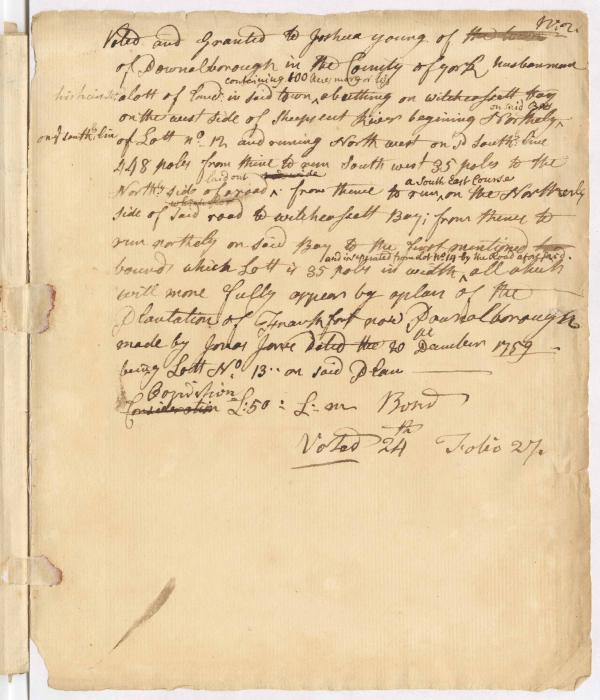 N.º 2.
Voted and Granted to Joshua young of the town
of Downalborough in the County of york husbandman
containing 100 Acres more or less
his heirs &c a lott of land in said town ^ abutting on witchcassett Bay
on the west side of Sheepscut River begining Northerly ^ on said Bay
on sd. south.ly line of Lott no. 12 and runing North west on sd. south.ly line
248 poles from thence to run South west 35 poles to the
laid out
North.ly side of a road ^ from thence to run ^ a South East Course on the Northerly
side of said road to witchcassett Bay; from thence to
run northely on said Bay to the first mentioned
and is seperated from Lot No. 14 by the Road aforesaid.
bounds which Lott is 35 poles in width ^ all which
will more fully appear by a plan of the
Plantation of Frankfort now Downalborough
made by Jonas Jones Dated the 20th Dcember 1759
being Lott No. 13 on said Plan
Condition
Consideration £:50: L: m Bond
Voted 24th Folio 27.